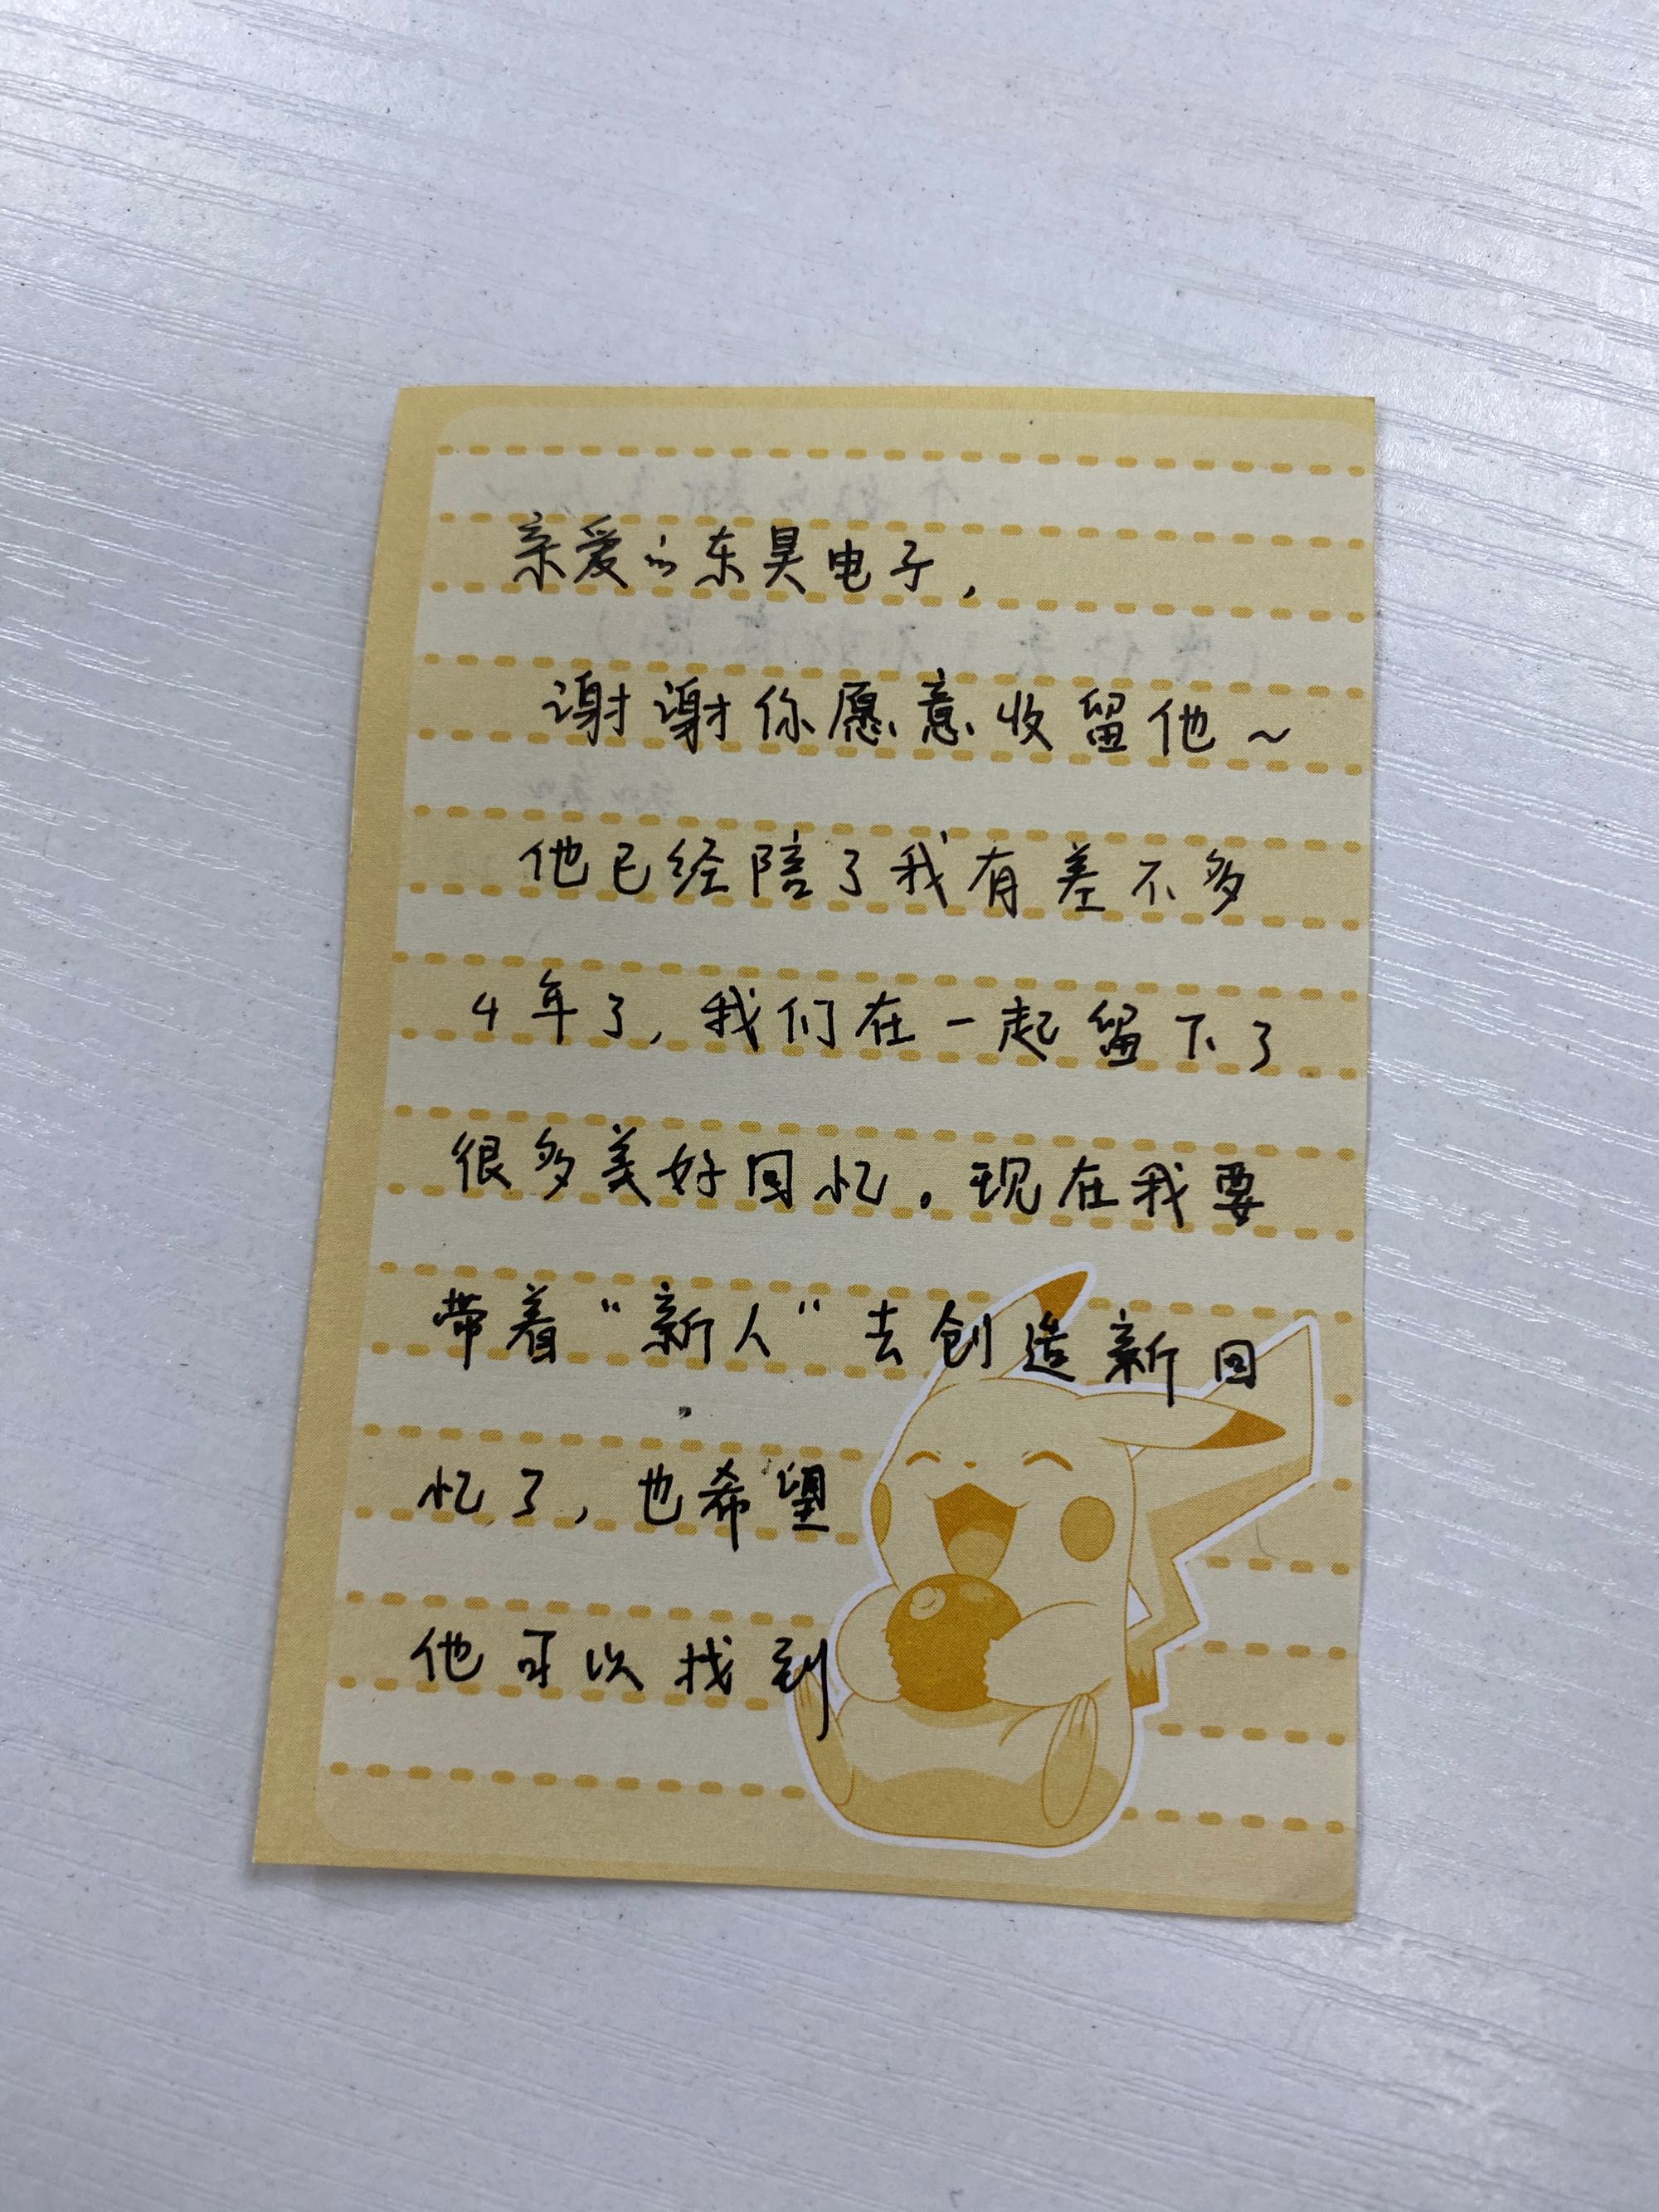 亲爱的东昊电子，
谢谢你愿意收留他～
他已经陪了我有差不多
4年了，我们在一起留下了
很多美好回忆。现在我要
带着“新人”去创造新回
忆了，也希望
他可以找到